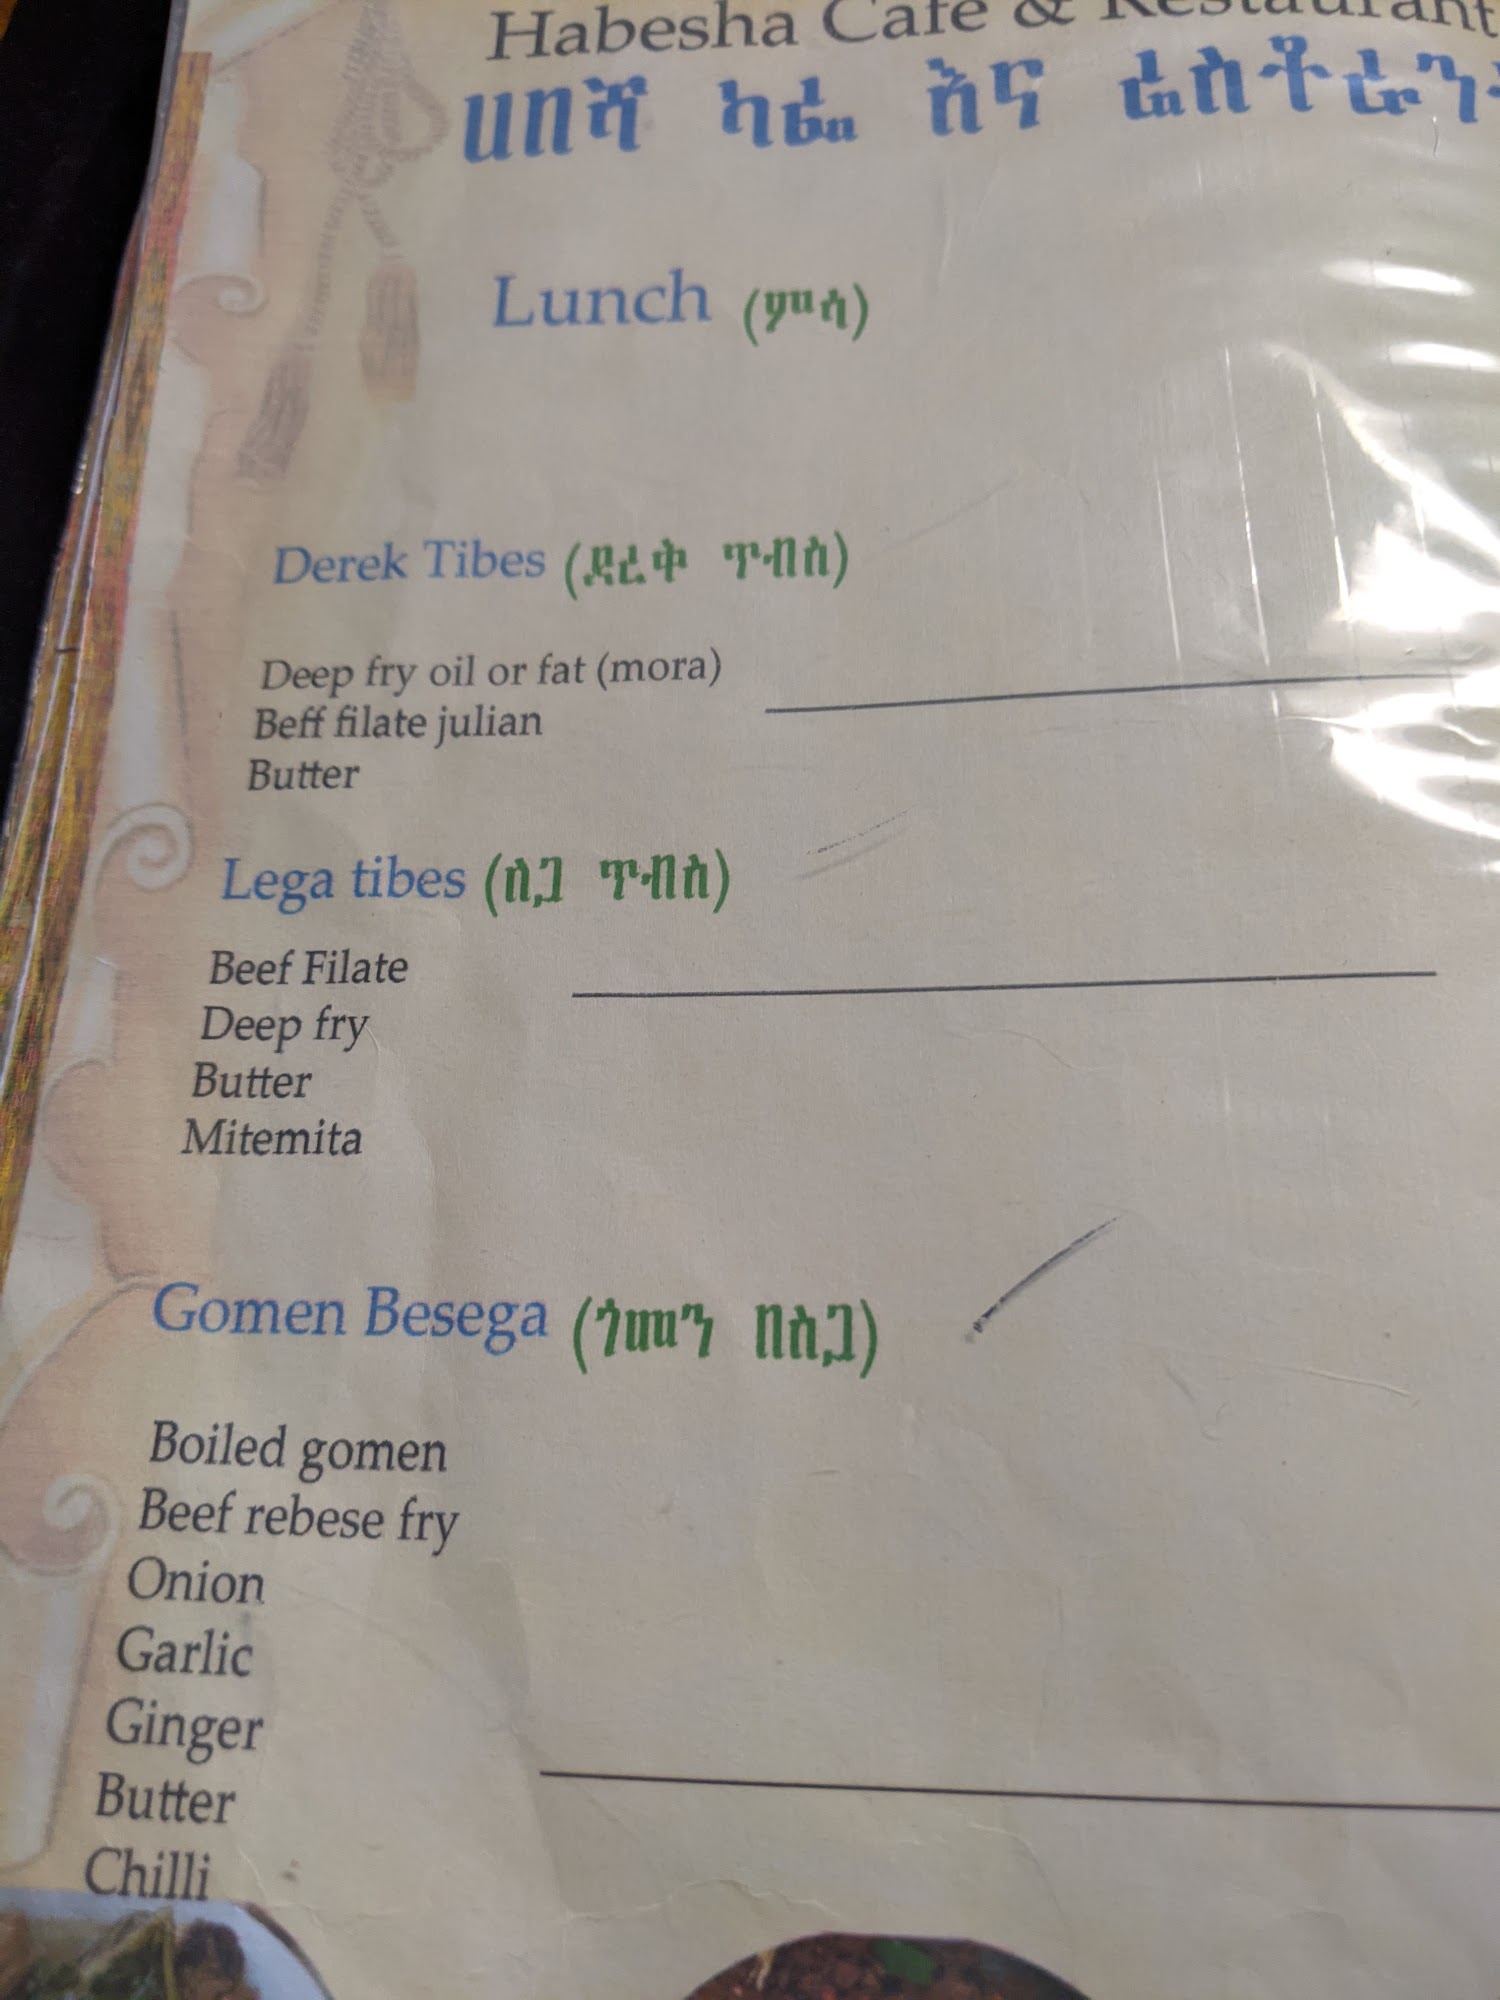 Habesha Cafe & Restaurant
ሀበሻ ካፌ እና
Lunch (ምሳ)
Derek Tibes (ደረቅ ጥብስ)
Deep fry oil or fat (mora)
Beff filate julian
Butter
Lega tibes (ለጋ ጥብስ)
Beef Filate
Deep fry
Butter
Mitemita
Gomen Besega (ጎመን በስጋ)
Boiled gomen
Beef rebese fry
Onion
Garlic
Ginger
Butter
Chilli